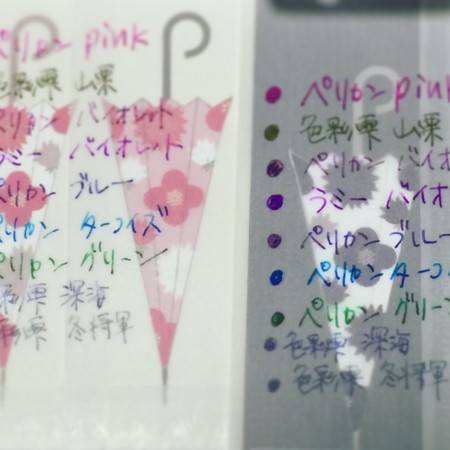 ペリカン pink
色彩雫 山栗
ペリカン バイオレット
ラミー バイオレット
ペリカン ブルー
ペリカン ターコイズ
ペリカン グリーン
色彩雫 深海
色彩雫 冬将軍
ペリカン pink
色彩雫 山栗
ペリカン バイオ
ラミー バイオ
ペリカン ブルー
ペリカン ターコイ
ペリカン グリー
色彩雫 深海
色彩雫 冬将軍